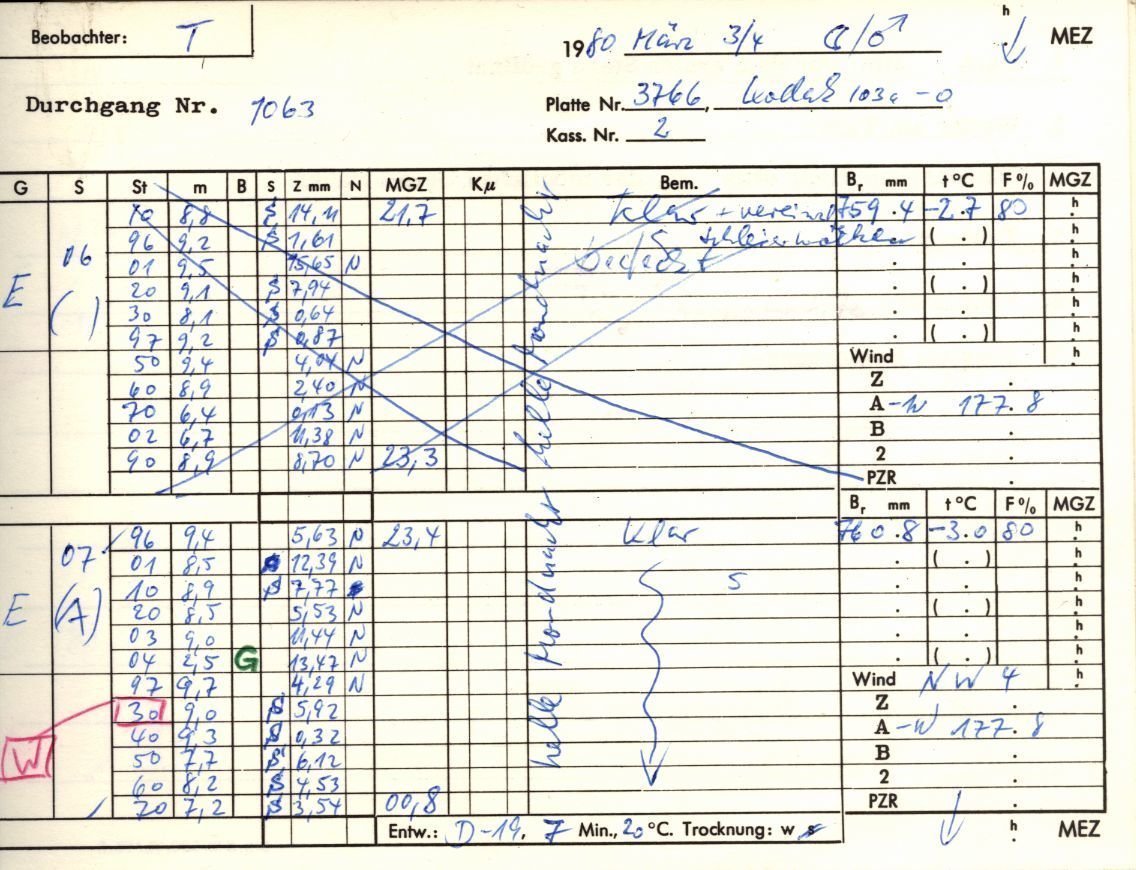 Beobachter: T
1980 März 3/4 ☾/♂
h MEZ
Durchgang Nr. 1063
Platte Nr. 3766, Kodak 103a-O
Kass. Nr. 2
G S St m B S Z mm N MGZ Kμ Bem. Br mm t°C F% MGZ
E 06 ( )
10 8,8 S 14,11 21,7 klar + vereinzelt 759.4 -2.7 80 h
96 9,2 S 1,61 Schleierwolken ( . )
01 9,5 15,65 N bedeckt . h
20 9,1 S 7,94 . ( . )
30 8,1 S 0,64 . h
97 9,2 S 0,87 . ( . ) h
50 9,4 4,04 N Wind . h
60 8,9 2,40 N Z .
70 6,4 0,13 N A -W 177.8
02 6,7 11,38 N B .
90 8,9 8,70 N 23,3 2 .
PZR .
helle Mondnacht
Br mm t°C F% MGZ
E 07 (A)
96 9,4 5,63 N 23,4 klar 760.8 -3.0 80 h
01 8,5 12,39 N . ( . )
10 8,9 S 7,77 5 . h
20 8,5 5,53 N . ( . )
03 9,0 11,44 N . h
04 2,5 G 13,47 N . ( . )
97 9,7 4,29 N Wind NW 4 h
30 9,0 S 5,92 Z .
40 9,3 S 0,32 A -W 177.8
W 50 7,7 S 6,12 B .
60 8,2 S 4,53 2 .
70 7,2 S 3,54 00,8 PZR .
helle Mondnacht
Entw.: D-19, 7 Min., 20 °C. Trocknung: w s
h MEZ